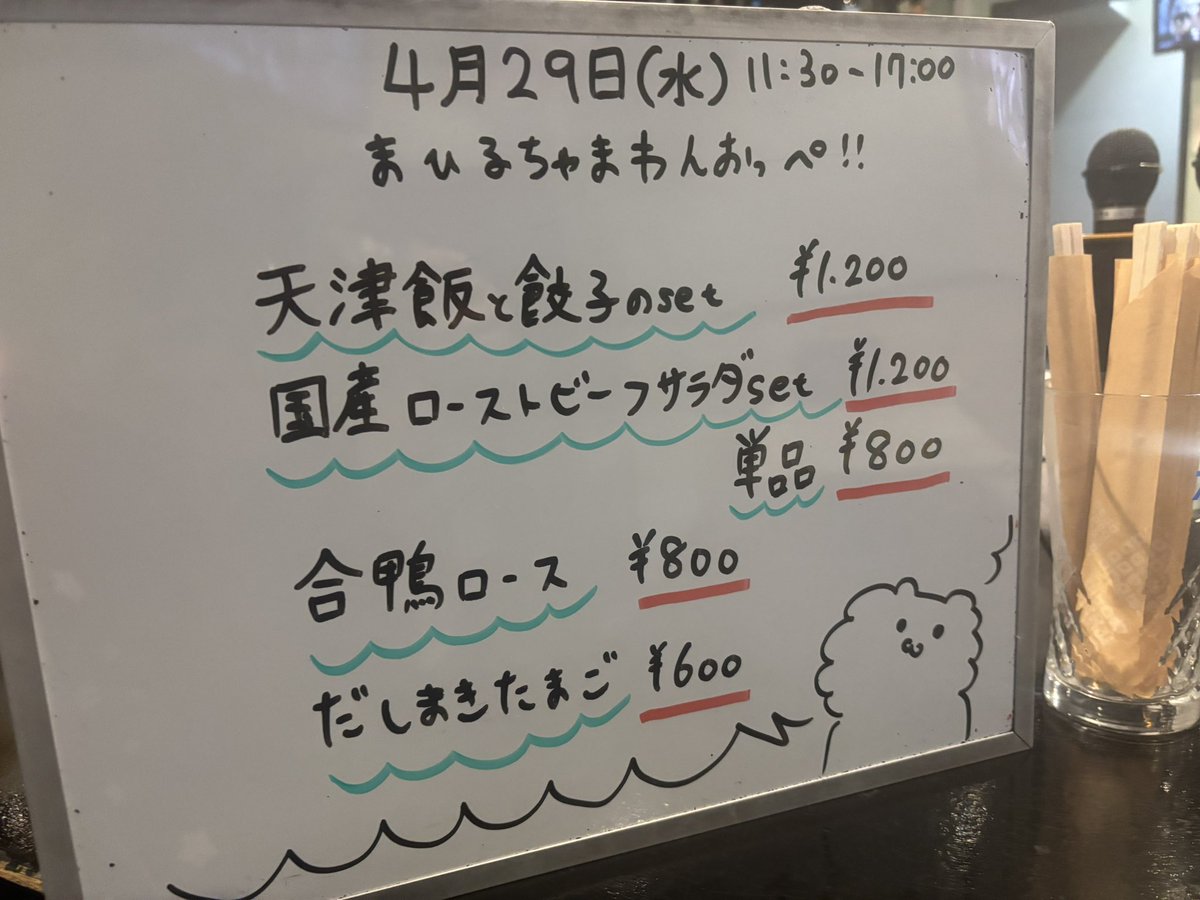 4月29日(水) 11:30-17:00
まひるちゃまわんおっぺ!!
天津飯と餃子のset ¥1.200
国産ローストビーフサラダset ¥1.200
単品 ¥800
合鴨ロース ¥800
だしまきたまご ¥600